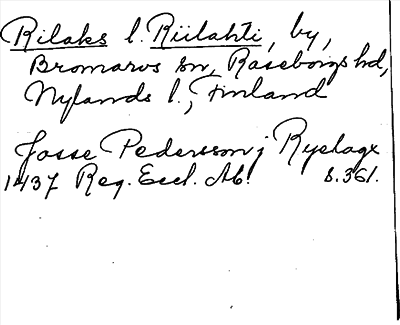 Rilaks l. Riilahti, by,
Bromarvs sn, Raseborgs hd,
Nylands l., Finland
Josse Pedersson j Ryelage
1437 Reg. Eccl. Ab. s. 361.